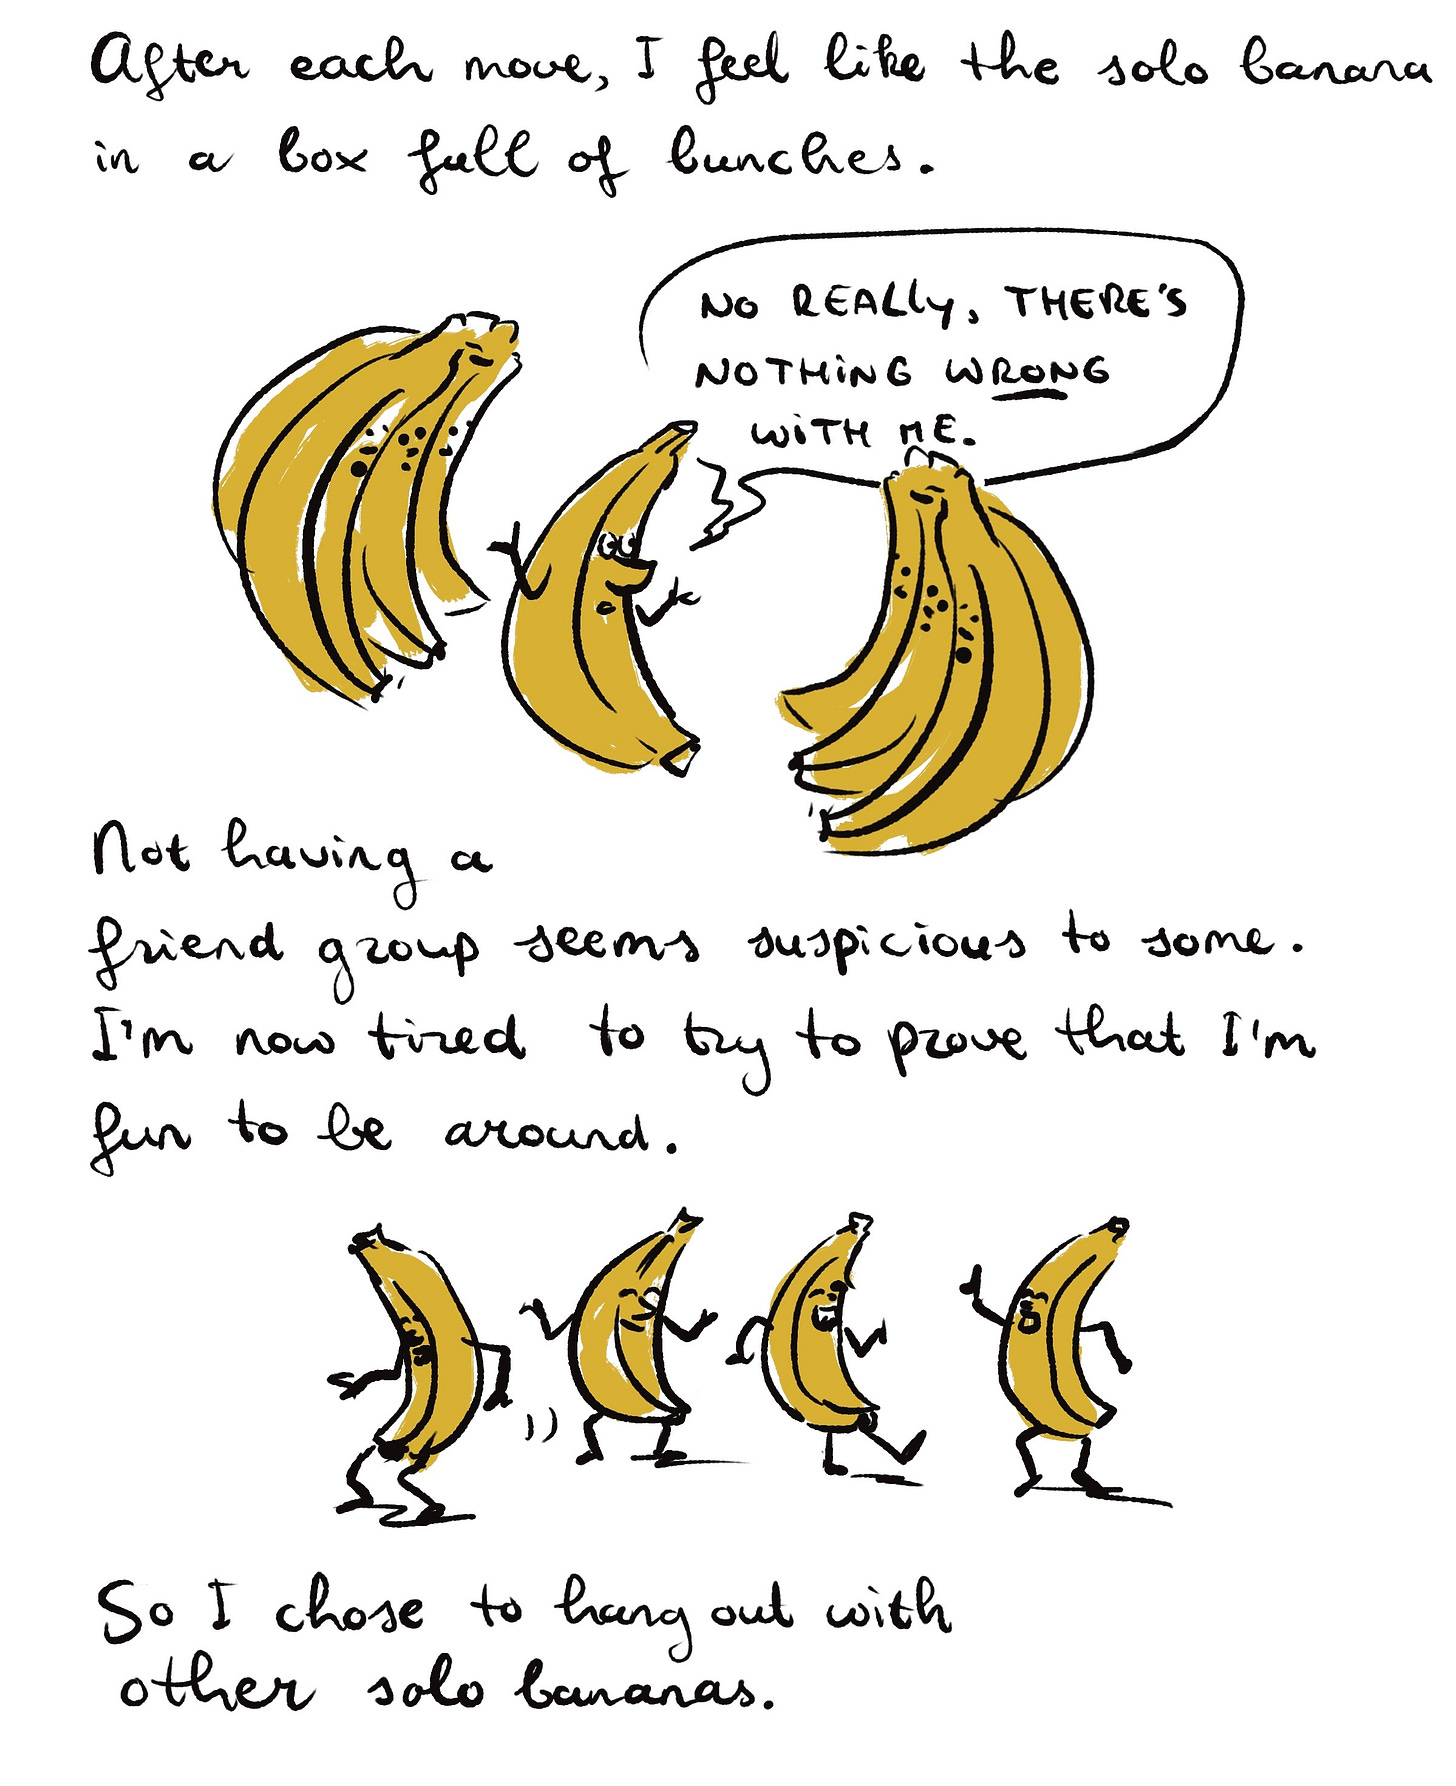 After each move, I feel like the solo banana
in a box full of bunches.
NO REALLY, THERE'S
NOTHING WRONG
WITH ME.
Not having a
friend group seems suspicious to some.
I'm now tired to try to prove that I'm
fun to be around.
So I chose to hang out with
other solo bananas.